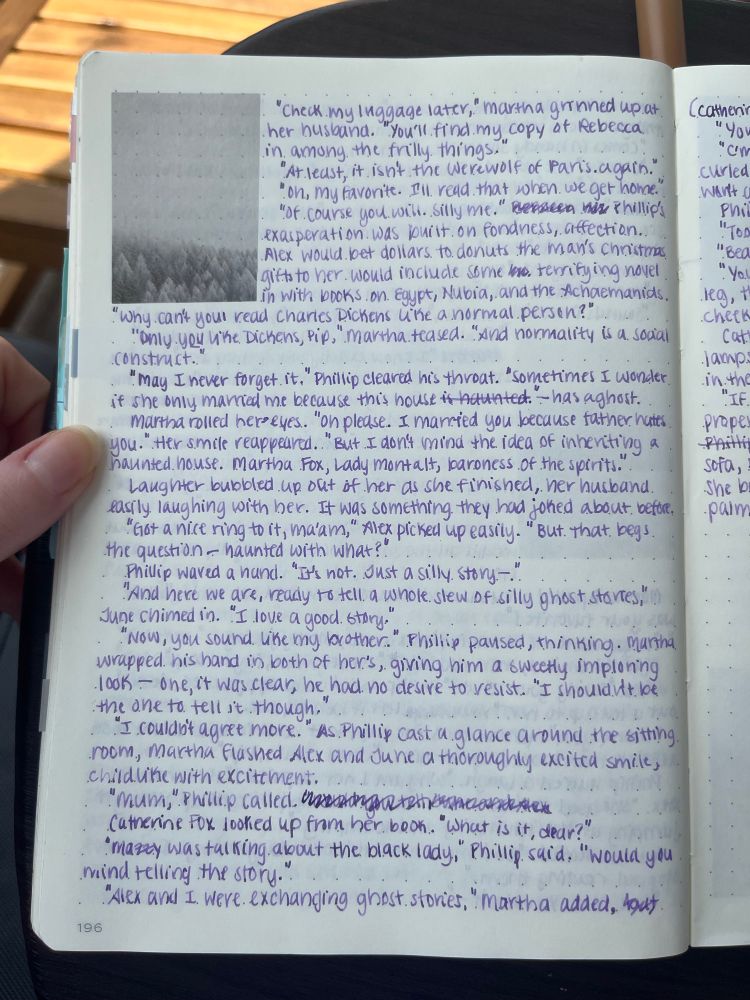 "Check my luggage later," martha grinned up at
her husband. "You'll find my copy of Rebecca
in among the frilly things."
"At least, it isn't the Werewolf of Paris again."
"Oh, my favorite. I'll read that when we get home."
"Of course you will. Silly me." Phillip's
exasperation was built on fondness, affection.
Alex would bet dollars to donuts the man's Christmas
gifts to her would include some terrifying novel
in with books on Egypt, Nubia, and the Achaemanids.
"Why can't you read Charles Dickens like a normal person?"
"Only you like Dickens, Pip," Martha teased. "And normality is a social
construct."
"May I never forget it." Phillip cleared his throat. "Sometimes I wonder
if she only married me because this house is haunted." – has a ghost.
Martha rolled her eyes. "Oh please. I married you because father hates
you." Her smile reappeared. "But I don't mind the idea of inheriting a
haunted house. Martha Fox, Lady Montalt, baroness of the spirits."
Laughter bubbled up out of her as she finished, her husband
easily laughing with her. It was something they had joked about before.
"Got a nice ring to it, ma'am," Alex picked up easily. "But that begs
the question – haunted with what?"
Phillip waved a hand. "It's not. Just a silly story –"
"And here we are, ready to tell a whole slew of silly ghost stories,"
June chimed in. "I love a good story."
"Now, you sound like my brother." Phillip paused, thinking. Martha
wrapped his hand in both of her's, giving him a sweetly imploring
look – one, it was clear, he had no desire to resist. "I shouldn't be
the one to tell it though."
"I couldn't agree more." As Phillip cast a glance around the sitting
room, Martha flashed Alex and June a thoroughly excited smile,
childlike with excitement.
"Mum," Phillip called.
Catherine Fox looked up from her book. "What is it, dear?"
"Mazzy was talking about the black lady," Phillip said. "Would you
mind telling the story."
"Alex and I were exchanging ghost stories," Martha added, but
196
(Catherin
"You
curled
want a
Phil
"Too
"Bea
"You
leg, th
cheek
Cat
lamp
in the
"IF
proper
Philli
sofa,
she b
palm